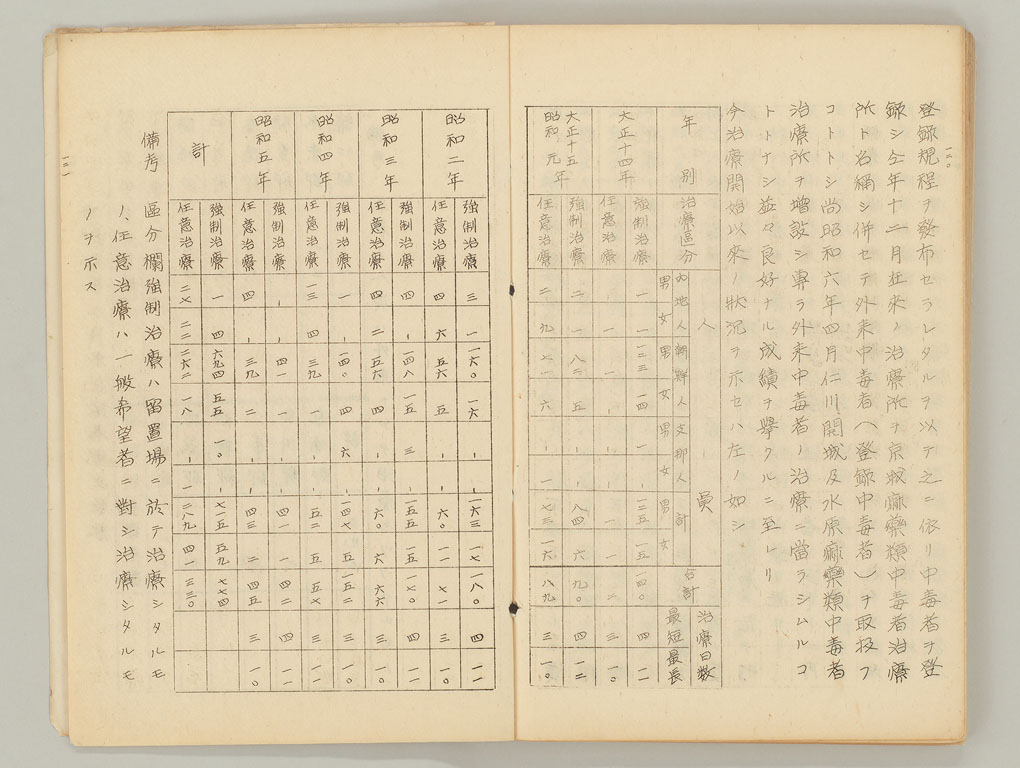 一二〇
登錄規程ヲ發布セラレタルヲ以テ之ニ依リ中毒者ヲ登
錄シ仝年十二月在來ノ治療所ヲ京城麻藥類中毒者治療
所ト改稱シ併セテ外來中毒者(登錄中毒者)ヲ取扱フ
コトトシ尚昭和六年四月仁川、開城及水原麻藥類中毒者
治療所ヲ增設シ專ラ外來中毒者ノ治療ニ當ラシムルコ
トトナシ益々良好ナル成績ヲ擧クルニ至レリ
今治療開始以來ノ狀況ヲ示セハ左ノ如シ
年別 治療區分 人員 治療日數
內地人 朝鮮人 支那人 計 合計 最短 最長
男 女 男 女 男 女 男 女
大正十四年
強制治療 一 一 一三三 一四 一 、 一三五 一五 一四〇 四 一一
任意治療 、 一 一 、 、 、 一 一 二 三 一〇
大正十五年 昭和元年
強制治療 二 一 八二 五 、 、 八四 六 九〇 四 一二
任意治療 二 九 七一 六 、 一 七三 一六 八九 三 一〇
昭和二年
強制治療 三 一 一六〇 一六 、 、 一六三 一七 一八〇 四 一一
任意治療 四 六 五六 五 、 、 六〇 一一 七一 三 一〇
昭和三年
強制治療 四 、 一四八 一五 三 、 一五五 一五 一七〇 四 一一
任意治療 四 二 五六 四 、 、 六〇 六 六六 三 一〇
昭和四年
強制治療 一 、 一四〇 四 六 、 一四七 五 一五二 三 一一
任意治療 一三 四 三九 一 、 、 五二 五 五七 三 一一
昭和五年
強制治療 、 、 四一 一 、 、 四一 一 四二 四 一一
任意治療 四 、 三九 二 、 、 四三 二 四五 三 一〇
計
強制治療 一一 四 六九四 五五 一〇 、 七一五 五九 七七四
任意治療 二七 二二 二六二 一八 、 一 二八九 四一 三三〇
備考 區分欄強制治療ハ留置場ニ於テ治療シタルモ
ノ、任意治療ハ一般希望者ニ對シ治療シタルモ
ノヲ示ス
一二一